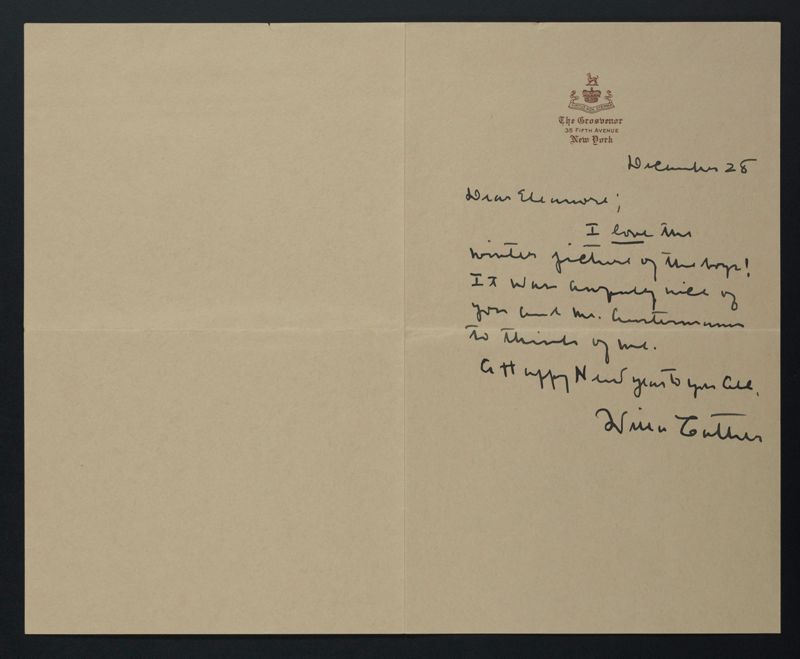 The Grosvenor
35 FIFTH AVENUE
New York
December 28
Dear Eleanore;
I love the
winter picture of the boys!
It was awfully nice of
you and Mr. Austermann
to think of me.
A Happy New Year to you all.
Willa Cather